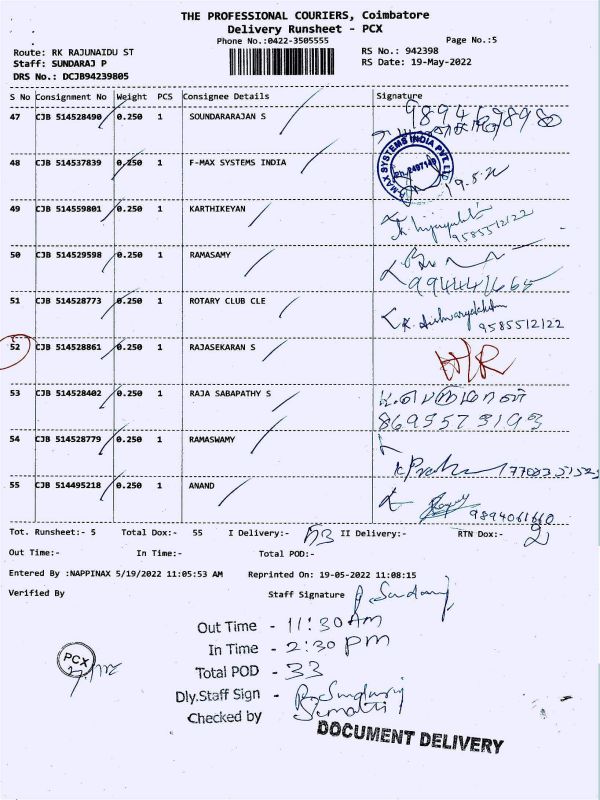 THE PROFESSIONAL COURIERS, Coimbatore
Delivery Runsheet - PCX
Phone No.:0422-3505555
Page No.:5
Route: RK RAJUNAIDU ST
RS No.: 942398
Staff: SUNDARAJ P
RS Date: 19-May-2022
DRS No.: DCJB94239805
S No Consignment No Weight PCS Consignee Details Signature
47 CJB 514528490 0.250 1 SOUNDARARAJAN S
48 CJB 514537839 0.250 1 F-MAX SYSTEMS INDIA
F-MAX SYSTEMS INDIA PVT. LTD
19.5.22
49 CJB 514559801 0.250 1 KARTHIKEYAN
9585512122
50 CJB 514529598 0.250 1 RAMASAMY
51 CJB 514528773 0.250 1 ROTARY CLUB CLE
9585512122
52 CJB 514528861 0.250 1 RAJASEKARAN S
53 CJB 514528402 0.250 1 RAJA SABAPATHY S
8695573193
54 CJB 514528779 0.250 1 RAMASWAMY
55 CJB 514495218 0.250 1 ANAND
9894061660
Tot. Runsheet:- 5 Total Dox:- 55 I Delivery:- 53 II Delivery:- RTN Dox:- 2
Out Time:- In Time:- Total POD:-
Entered By :NAPPINAX 5/19/2022 11:05:53 AM Reprinted On: 19-05-2022 11:08:15
Verified By Staff Signature P. Sundaraj
Out Time - 11:30 Am
In Time - 2:30 pm
PCX
Total POD - 33
Dly.Staff Sign - P. Sundaraj
Checked by
DOCUMENT DELIVERY